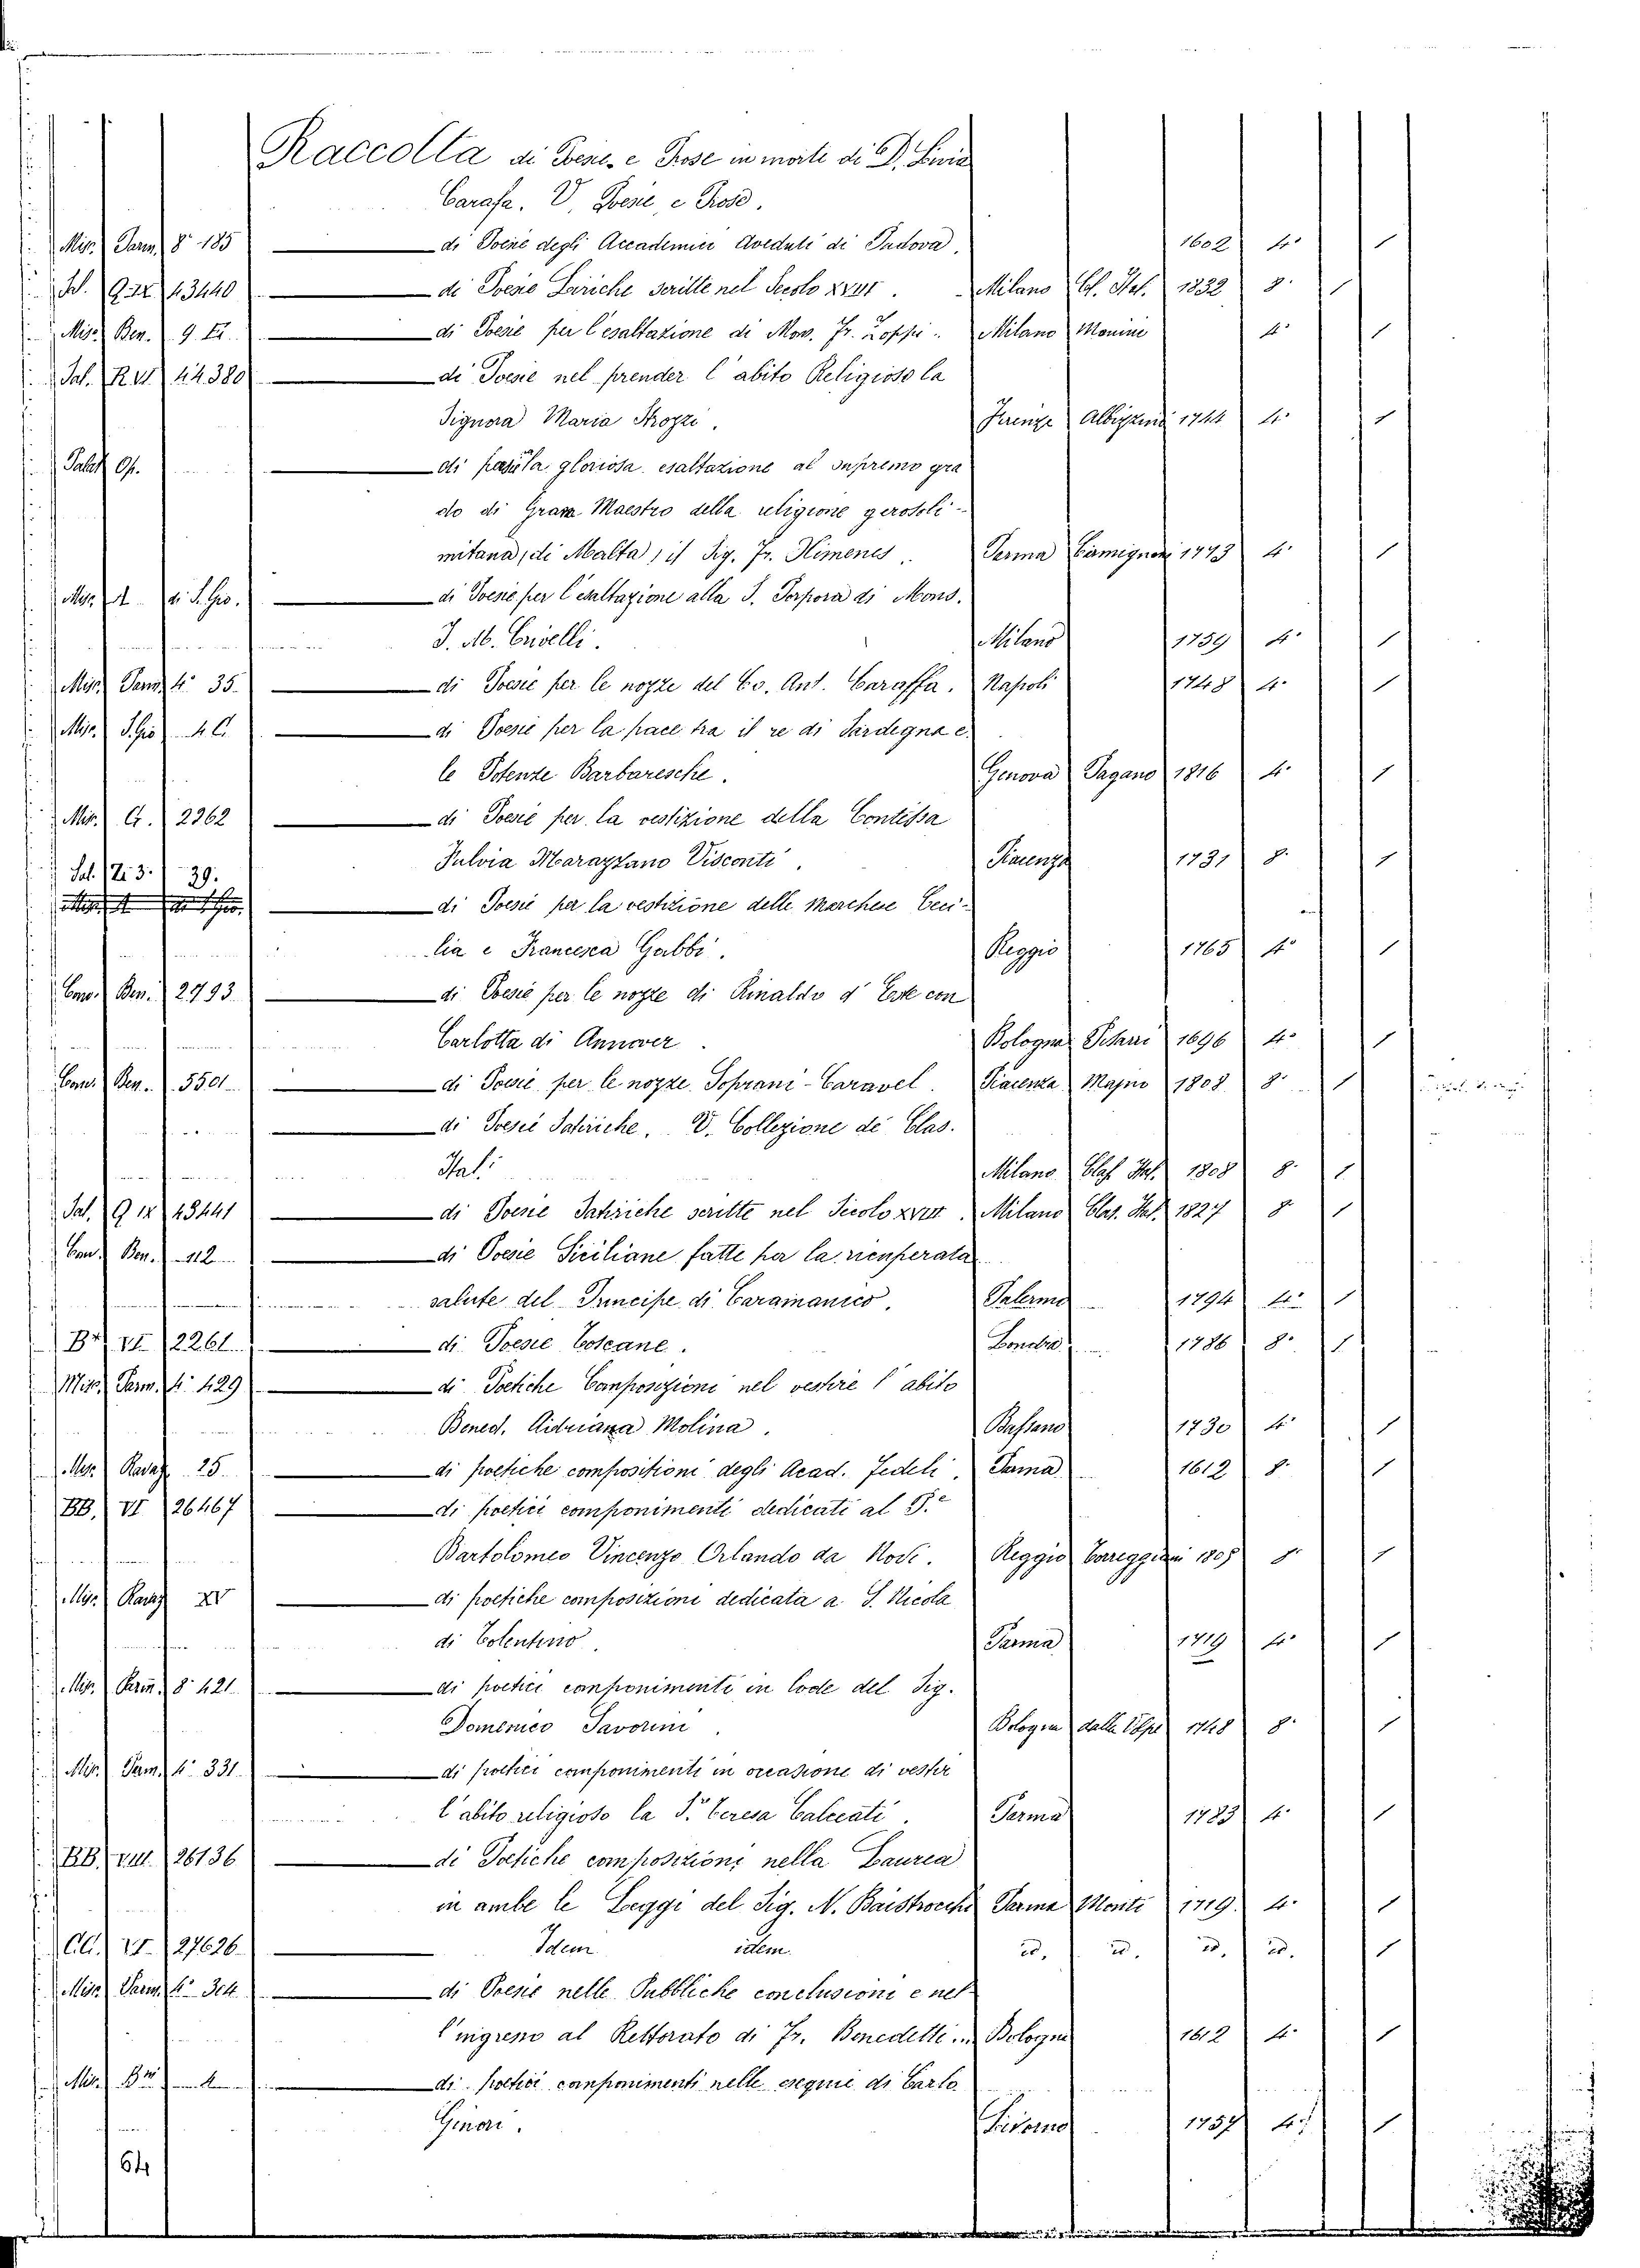 Raccolta di Poesie e Prose in morte di D. Livia
Carafa. V. Poesie e Prose.
Misc. Parm. 8° 185 di Poesie degli Accademici Aveduti di Padova. 1602 4° 1
Sal. Q. IX. 43440 di Poesie Liriche scritte nel Secolo XVIII. Milano Cl. Ital. 1832 8° 1
Misc. Ben. 9. di Poesie per l'esaltazione di Mon. Fr. Zoppi. Milano Monini 4° 1
Sal. R. VI 44380 di Poesie nel prender l'abito Religioso la
Signora Maria Strozzi. Firenze Albizzini 1744 4° 1
Palat. Op. di per la gloriosa esaltazione al supremo gra
do di Gran Maestro della religione gerosoli-
mitana, di Malta, il Sig. Fr. Himenes. Parma Carmignani 1773 4° 1
Misc. A di S. Gio. di Poesie per l'esaltazione alla S. Porpora di Mons.
I. M. Crivelli. Milano 1759 4° 1
Misc. Parm. 4° 35. di Poesie per le nozze del Co. Ant. Caraffa. Napoli 1748 4° 1
Misc. S. Gio 4 C. di Poesie per la pace tra il re di Sardegna e
le Potenze Barbaresche. Genova Pagano 1816 4° 1
Misc. G. 2362 di Poesie per la vestizione della Contessa
Fulvia Marazzano Visconti. Piacenza 1731 8° 1
Sal. Z. 3. 39.
di Poesie per la vestizione delle Marchese Ceci-
lia e Francesca Gabbi. Reggio 1765 4° 1
Conv. Ben. 2793 di Poesie per le nozze di Rinaldo d'Este con
Carlotta di Annover. Bologna 1696 4° 1
Conv. Ben. 5501 di Poesie per le nozze Soprani-Caravel. Piacenza Majno 1808 8° 1
di Poesie Satiriche. V. Collezione de Clas.
Ital: Milano Clas. Ital. 1808 8° 1
Sal. Q IX 43441 di Poesie Satiriche scritte nel Secolo XVIII. Milano Clas. Ital. 1827 8° 1
Conv. Ben. 112 di Poesie Siciliane fatte per la ricuperata
salute del Principe di Caramanico. Palermo 1794 4° 1
B* VI 2261 di Poesie Toscane. Londra 1786 8° 1
Misc. Parm. 4° 429 di Poetiche Composizioni nel vestire l'abito
Bened. Adriana Molina. Bassano 1730 4° 1
Misc. Ravaz. 25 di poetiche compositioni degli Acad. Fedeli. Parma 1612 8° 1
BB. VI 26467 di poetici componimenti dedicati al P.e
Bartolomeo Vincenzo Orlando da Novi. Reggio Torreggiani 1805 8° 1
Misc. Ravaz XV di poetiche composizioni dedicata a S. Nicola
di Tolentino. Parma 1719 4° 1
Misc. Parm. 8° 421 di poetici componimenti in lode del Sig.
Domenico Savorini. Bologna dalla Volpe 1748 8° 1
Misc. Parm. 4° 331. di poetici componimenti in occasione di vestir
l'abito religioso la S.ra Teresa Calcati. Parma 1783 4° 1
BB. VIII. 26136 di Poetiche composizioni nella Laurea
in ambe le Leggi del Sig. N. Baistrocchi Parma Monti 1719. 4° 1
CC. VI. 27626. Idem idem. id. id. id. id. 1
Misc. Parm. 4° 304 di Poesie nelle Pubbliche conclusioni e nel
l'ingresso al Rettorato di Fr. Benedetti in Bologna 1612 4° 1
Misc. di poetici componimenti nelle esequie di Carlo
Ginori. Livorno 1757 4° 1
64